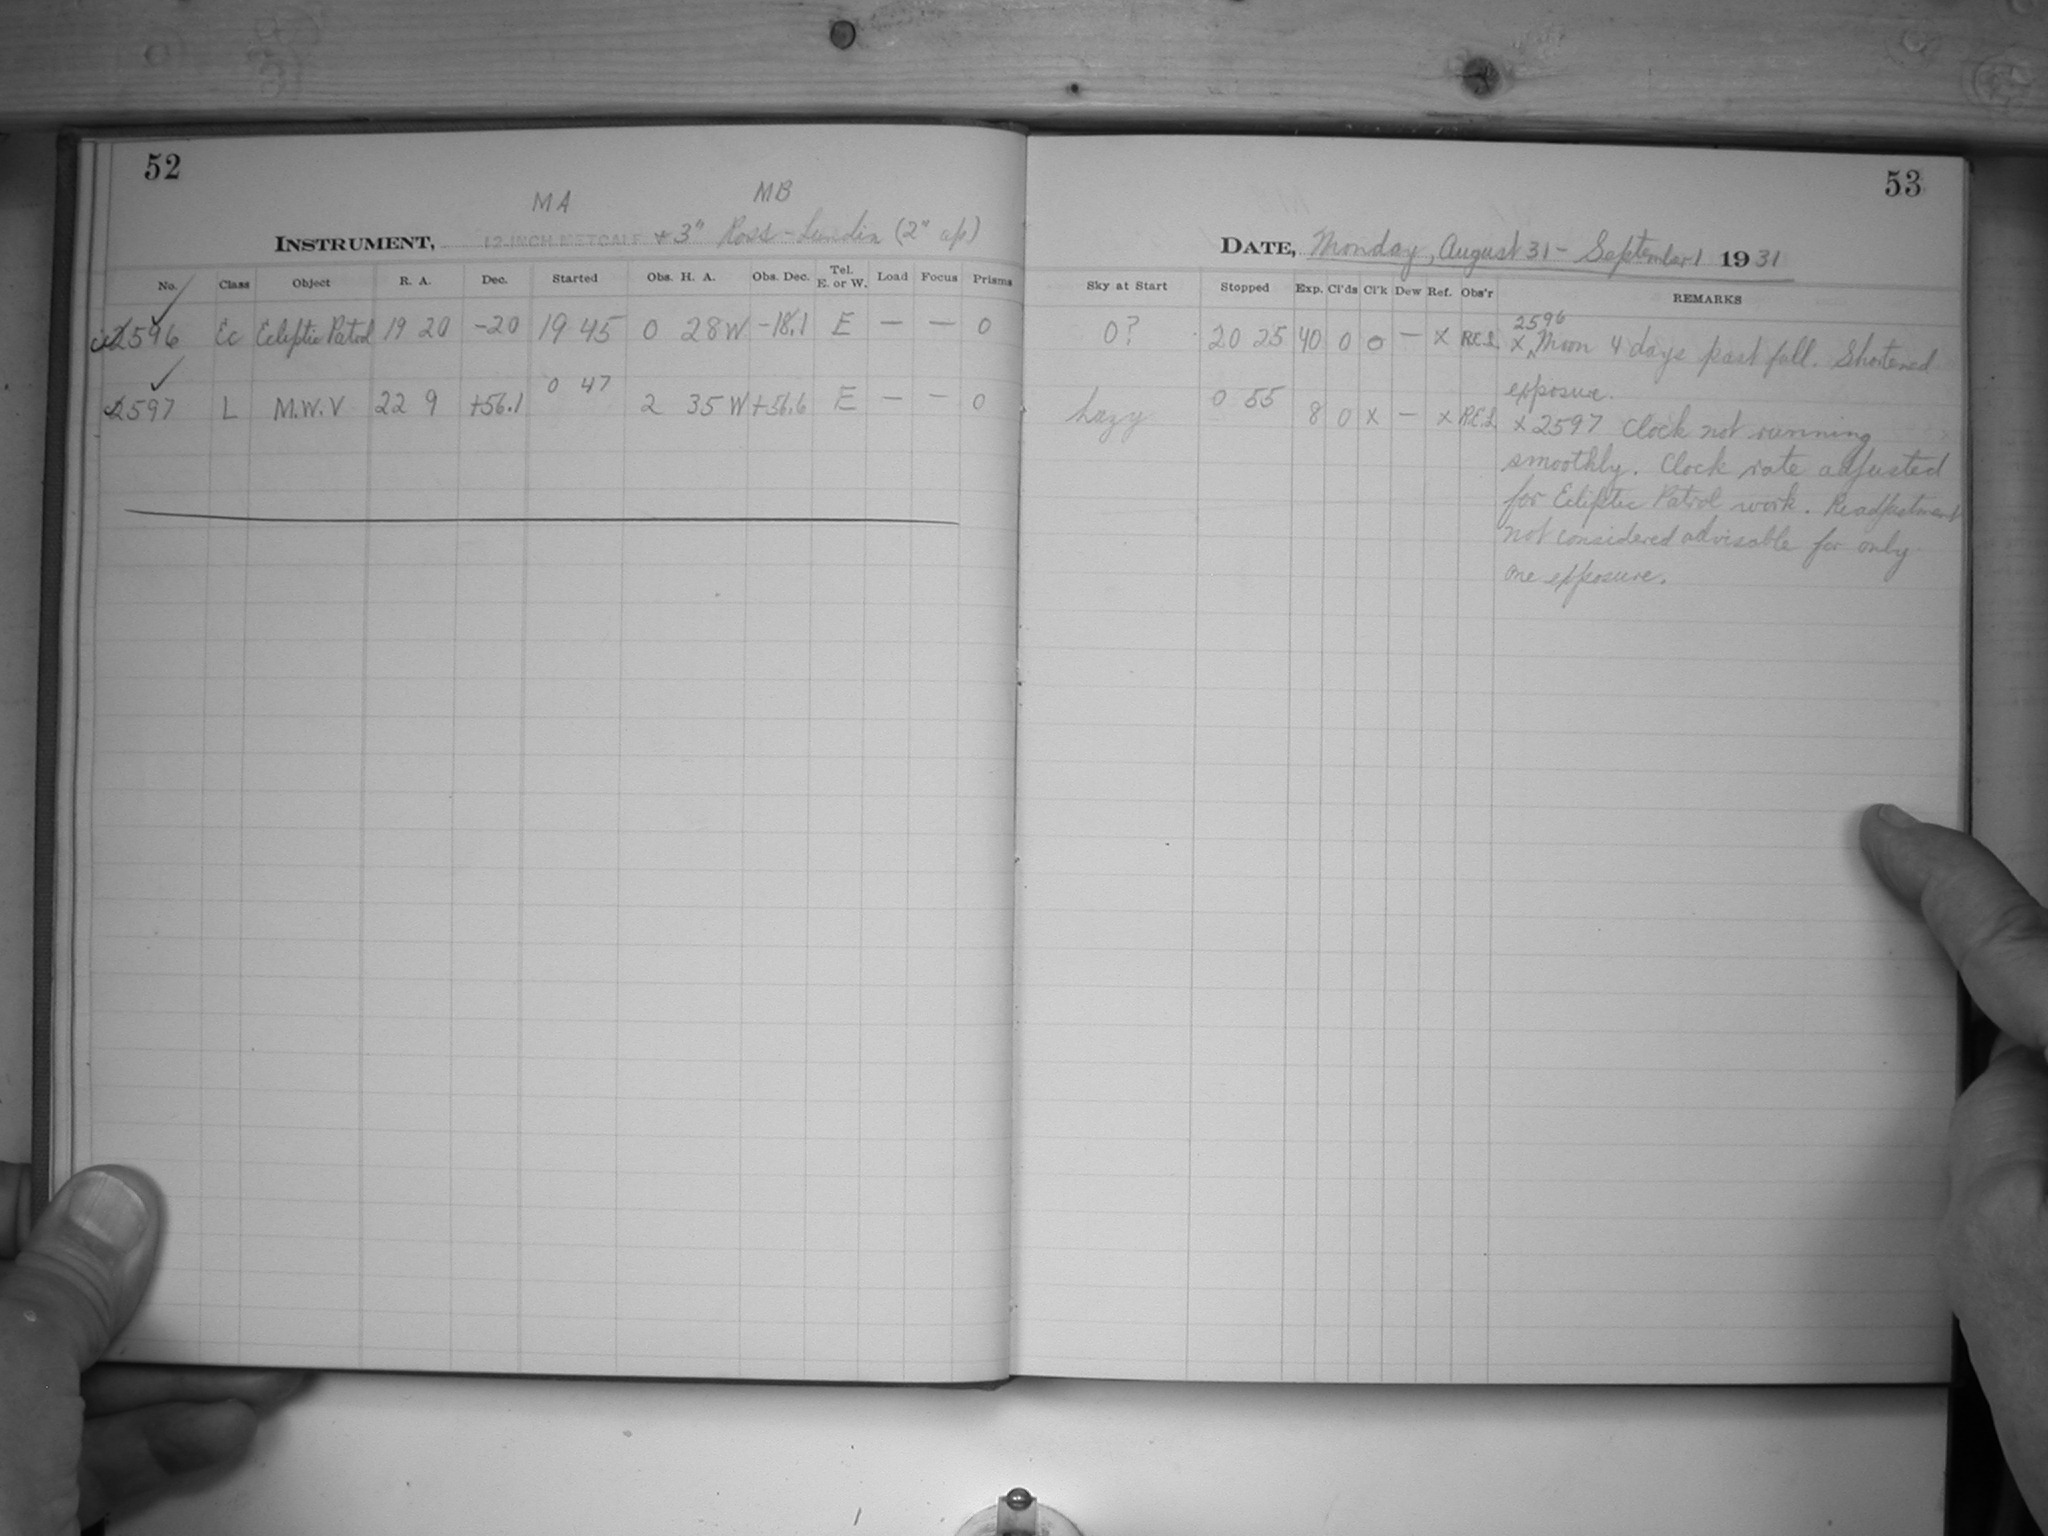 52
MA MB
INSTRUMENT, 12 INCH METCALF + 3" Ross-Lundin (2" ap)
No. Class Object R. A. Dec. Started Obs. H. A. Obs. Dec. Tel. E. or W. Load Focus Prisms
2596 Ec Ecliptic Patrol 19 20 -20 19 45 0 28 W -18.1 E — — 0
2597 L M.W.V 22 9 +56.1 0 47 2 35 W +56.6 E — — 0
53
DATE, Monday, August 31 - September 1 1931
Sky at Start Stopped Exp. Cl'ds Cl'k Dew Ref. Obs'r REMARKS
0? 20 25 40 0 0 — X R.E.L. X 2596 Moon 4 days past full. Shortened
exposure.
hazy 0 55 8 0 X — X R.E.L. X 2597 Clock not running
smoothly. Clock rate adjusted
for Ecliptic Patrol work. Readjustment
not considered advisable for only
one exposure.